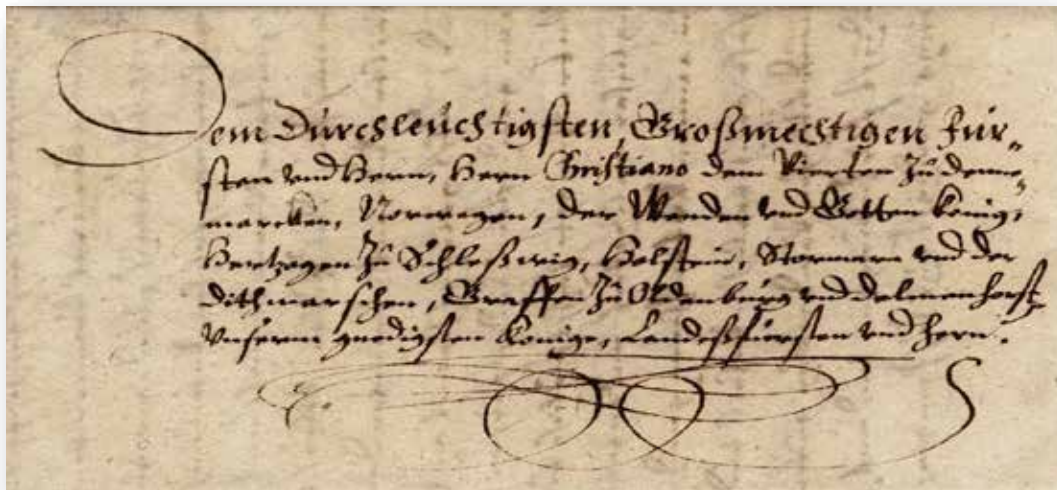 Dem Durchleuchtigsten, Großmechtigen Fur-
sten vnd Hern, Hern Christiano dem Vierten zu denne-
marcken, Norwegen, der Wenden vnd Gotten Konig,
Hertzogen zu Schleßwig, Holstein, Stormarn vnd der
dithmarschen, Graffen zu Oldenburg vnd delmenhorst,
Vnserm gnedigsten Konige, Landeßfürsten vnd hern.